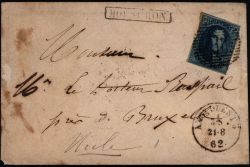 MOUSCRON
Monsieur
Mr. le Docteur Raspail
près de Bruxel
Uccle
21-8
62